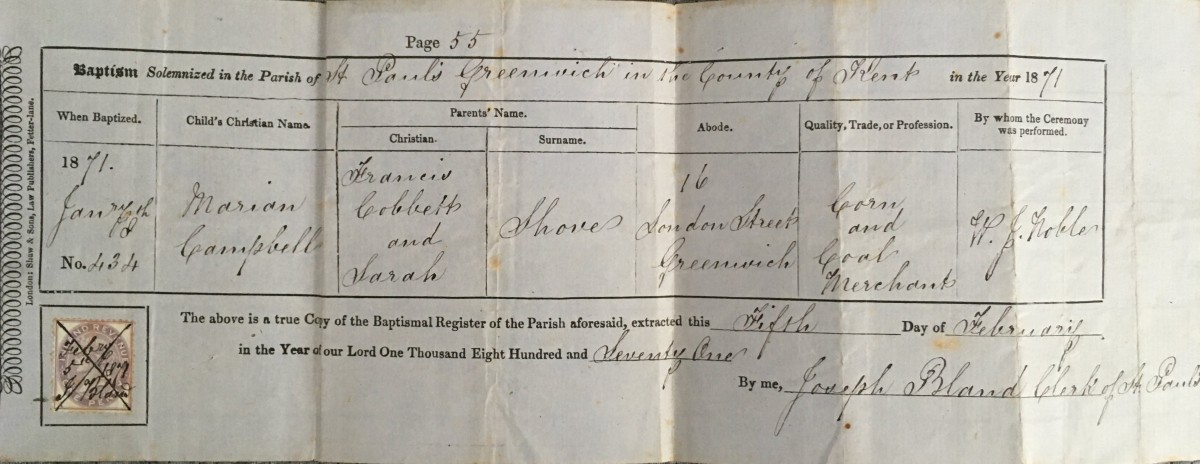 Page 55
Baptism Solemnized in the Parish of St. Paul's Greenwich in the County of Kent in the Year 1871
When Baptized.
Child's Christian Name.
Parents' Name.
Christian.
Surname.
Abode.
Quality, Trade, or Profession.
By whom the Ceremony
was performed.
1871.
Jany
No. 434
Marian
Campbell
Francis
Cobbett
and
Sarah
Shove
16
London Street
Greenwich
Corn
and
Coal
Merchant
W. J. Noble
The above is a true Copy of the Baptismal Register of the Parish aforesaid, extracted this Fifth Day of February
in the Year of our Lord One Thousand Eight Hundred and Seventy One
By me, Joseph Bland Clerk of St. Pauls
London: Shaw & Sons, Law Publishers, Fetter-lane.
INLAND REVENUE
Feby
5th 1871
J. Bland